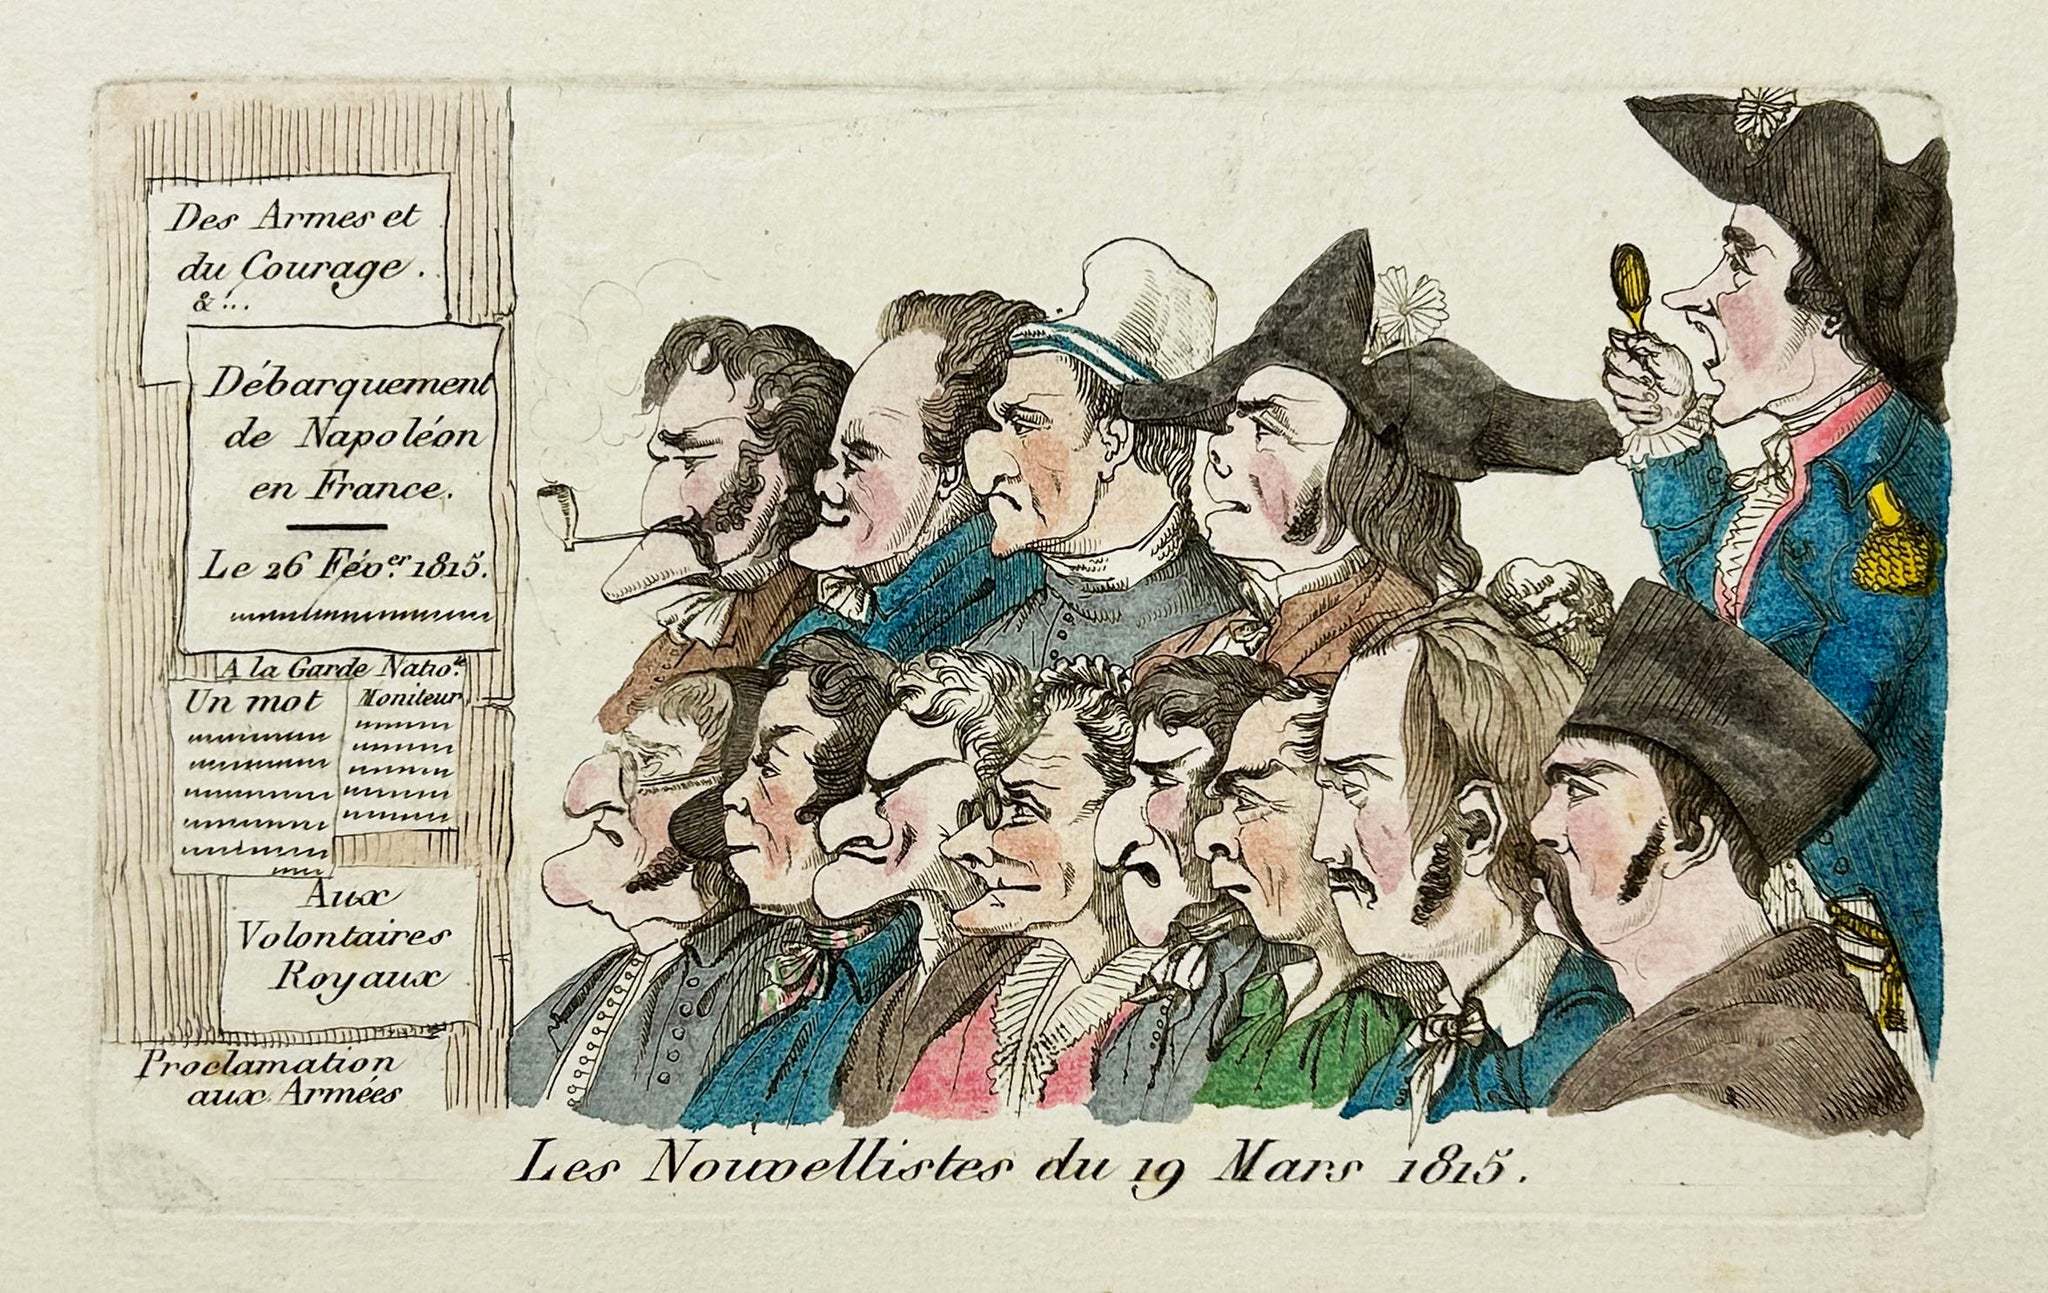 Des Armes et
du Courage.
&...
Débarquement
de Napoléon
en France.
Le 26 Fév.er 1815.
A la Garde Natio.le
Un mot
Moniteur
Aux
Volontaires
Royaux
Proclamation
aux Armées
Les Nouvellistes du 19 Mars 1815.